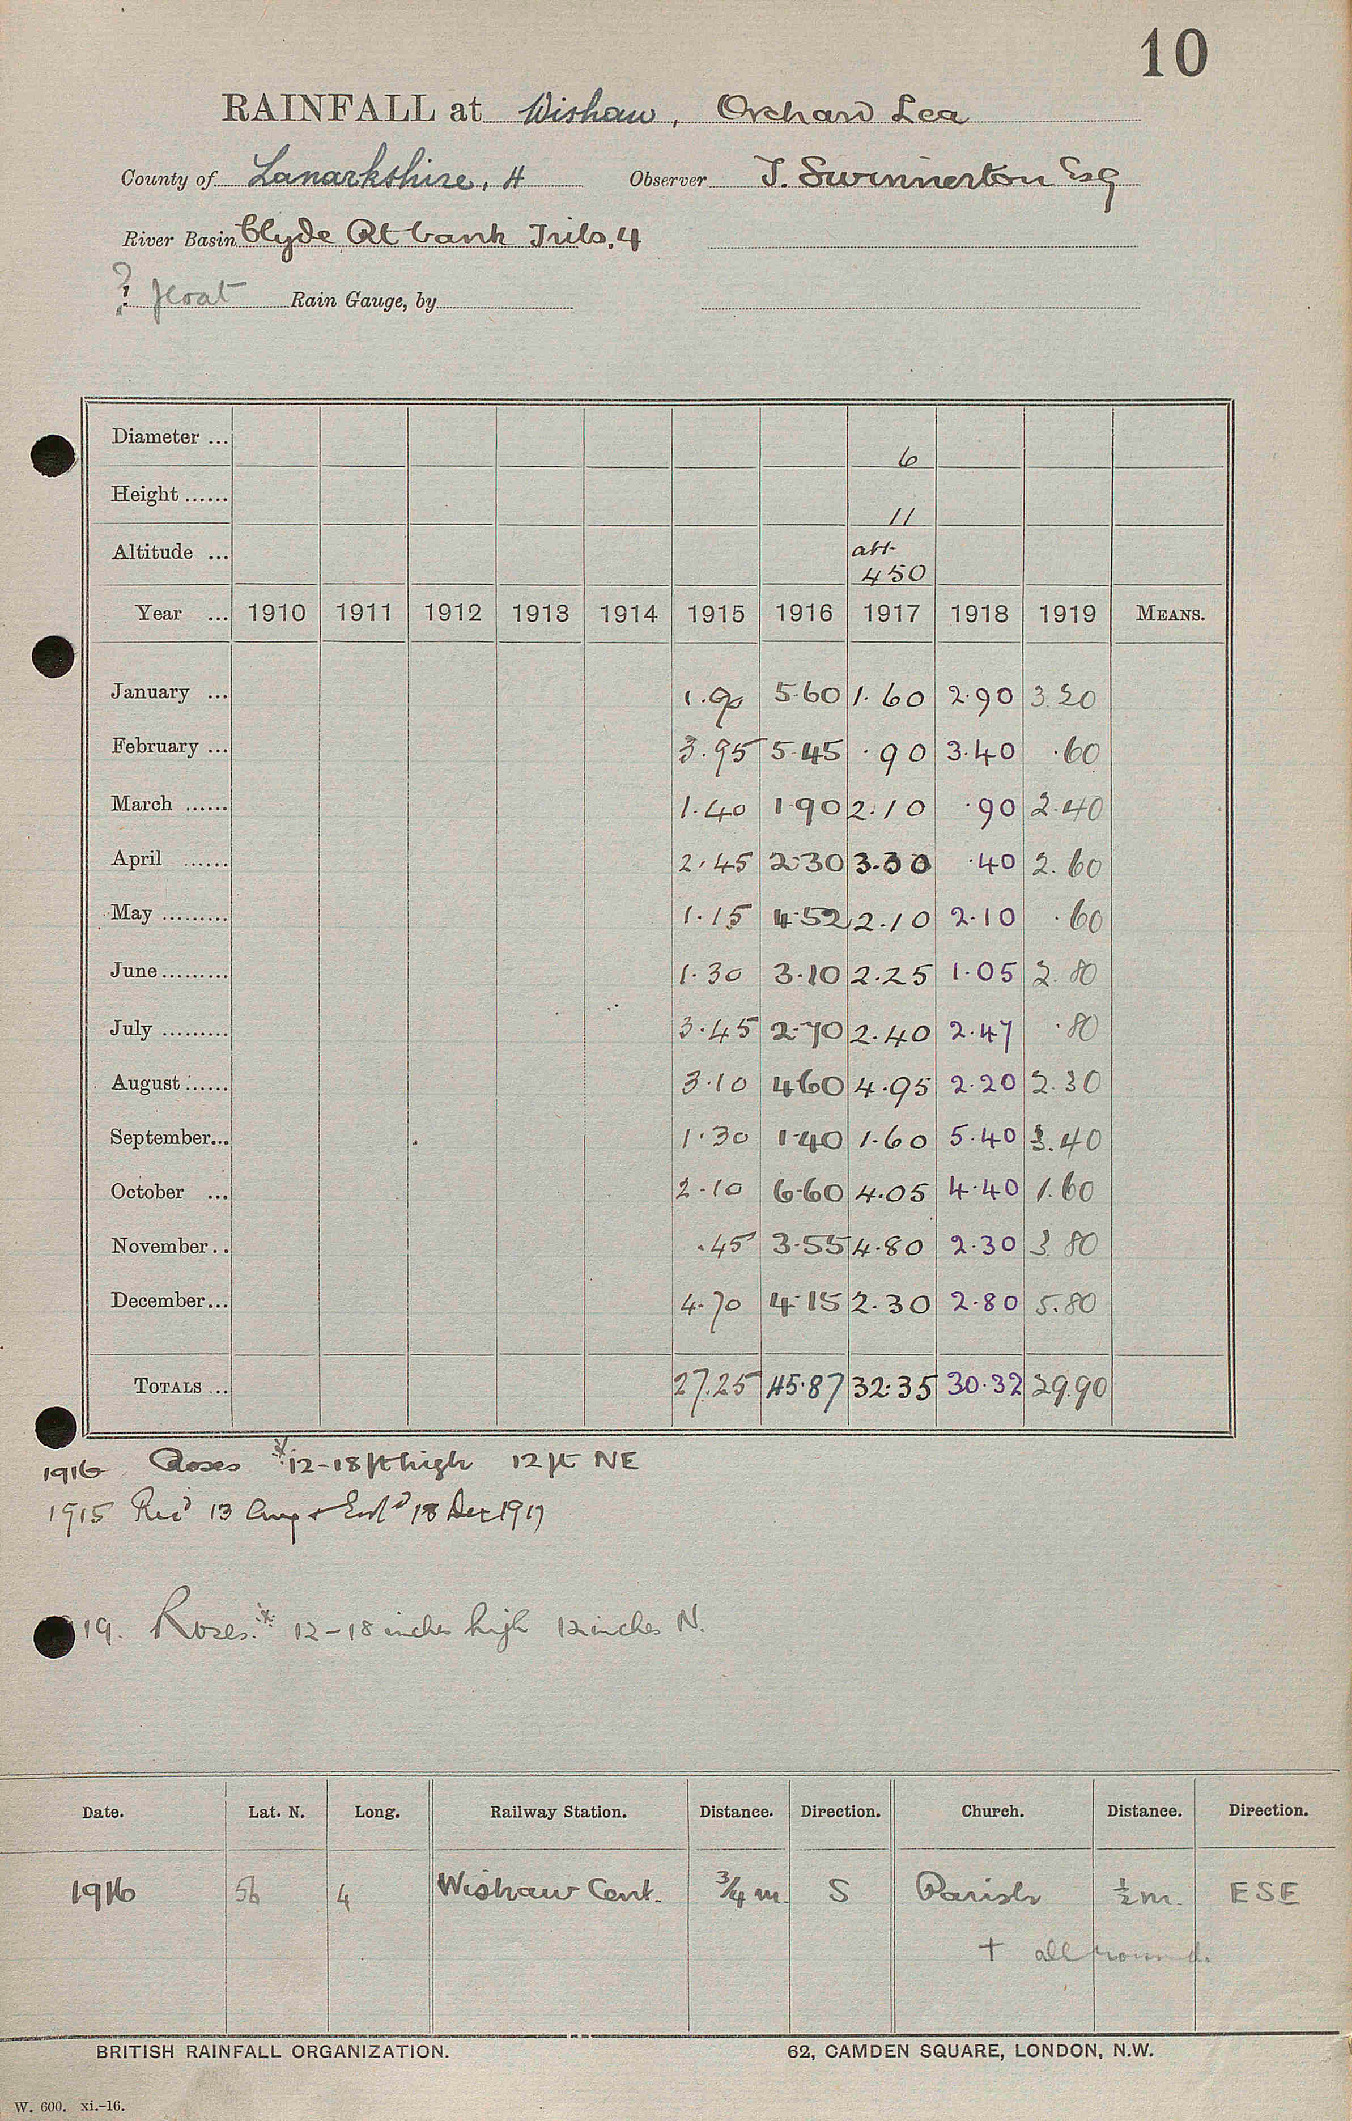 10
RAINFALL at Wishaw, Orchard Lea
County of Lanarkshire, H Observer J. Swinnerton Esq
River Basin Clyde Rt bank Tribs. 4
? float Rain Gauge, by
Diameter ... 6
Height ...... 11
Altitude ... abt. 450
Year ... 1910 1911 1912 1913 1914 1915 1916 1917 1918 1919 MEANS.
January ... 1.90 5.60 1.60 2.90 3.20
February ... 3.95 5.45 .90 3.40 .60
March ...... 1.40 1.90 2.10 .90 2.40
April ...... 2.45 2.30 3.30 .40 2.60
May ......... 1.15 4.52 2.10 2.10 .60
June ......... 1.30 3.10 2.25 1.05 2.80
July ......... 3.45 2.70 2.40 2.47 .80
August ...... 3.10 4.60 4.95 2.20 2.30
September... 1.30 1.40 1.60 5.40 3.40
October ... 2.10 6.60 4.05 4.40 1.60
November.. .45 3.55 4.80 2.30 3.80
December... 4.70 4.15 2.30 2.80 5.80
TOTALS ... 27.25 45.87 32.35 30.32 29.90
1916 Roses * 12-18 ft high 12 ft NE
1915 Rec'd 13 Aug + 18 Dec 1917
19. Roses.* 12-18 inches high 12 inches N.
Date. Lat. N. Long. Railway Station. Distance. Direction. Church. Distance. Direction.
1916 56 4 Wishaw Cent. 3/4 m. S Parish 1/2 m. ESE
+ all round.
BRITISH RAINFALL ORGANIZATION. 62, CAMDEN SQUARE, LONDON, N.W.
W. 600. xi.-16.